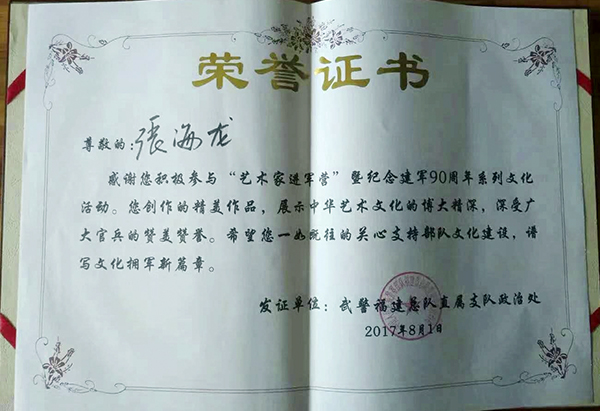 荣誉证书
尊敬的:張海龙
感谢您积极参与“艺术家进军营”暨纪念建军90周年系列文化
活动。您创作的精美作品，展示中华艺术文化的博大精深，深受广
大官兵的赞美赞誉。希望您一如既往的关心支持部队文化建设，谱
写文化拥军新篇章。
发证单位：武警福建总队直属支队政治处
2017年8月1日